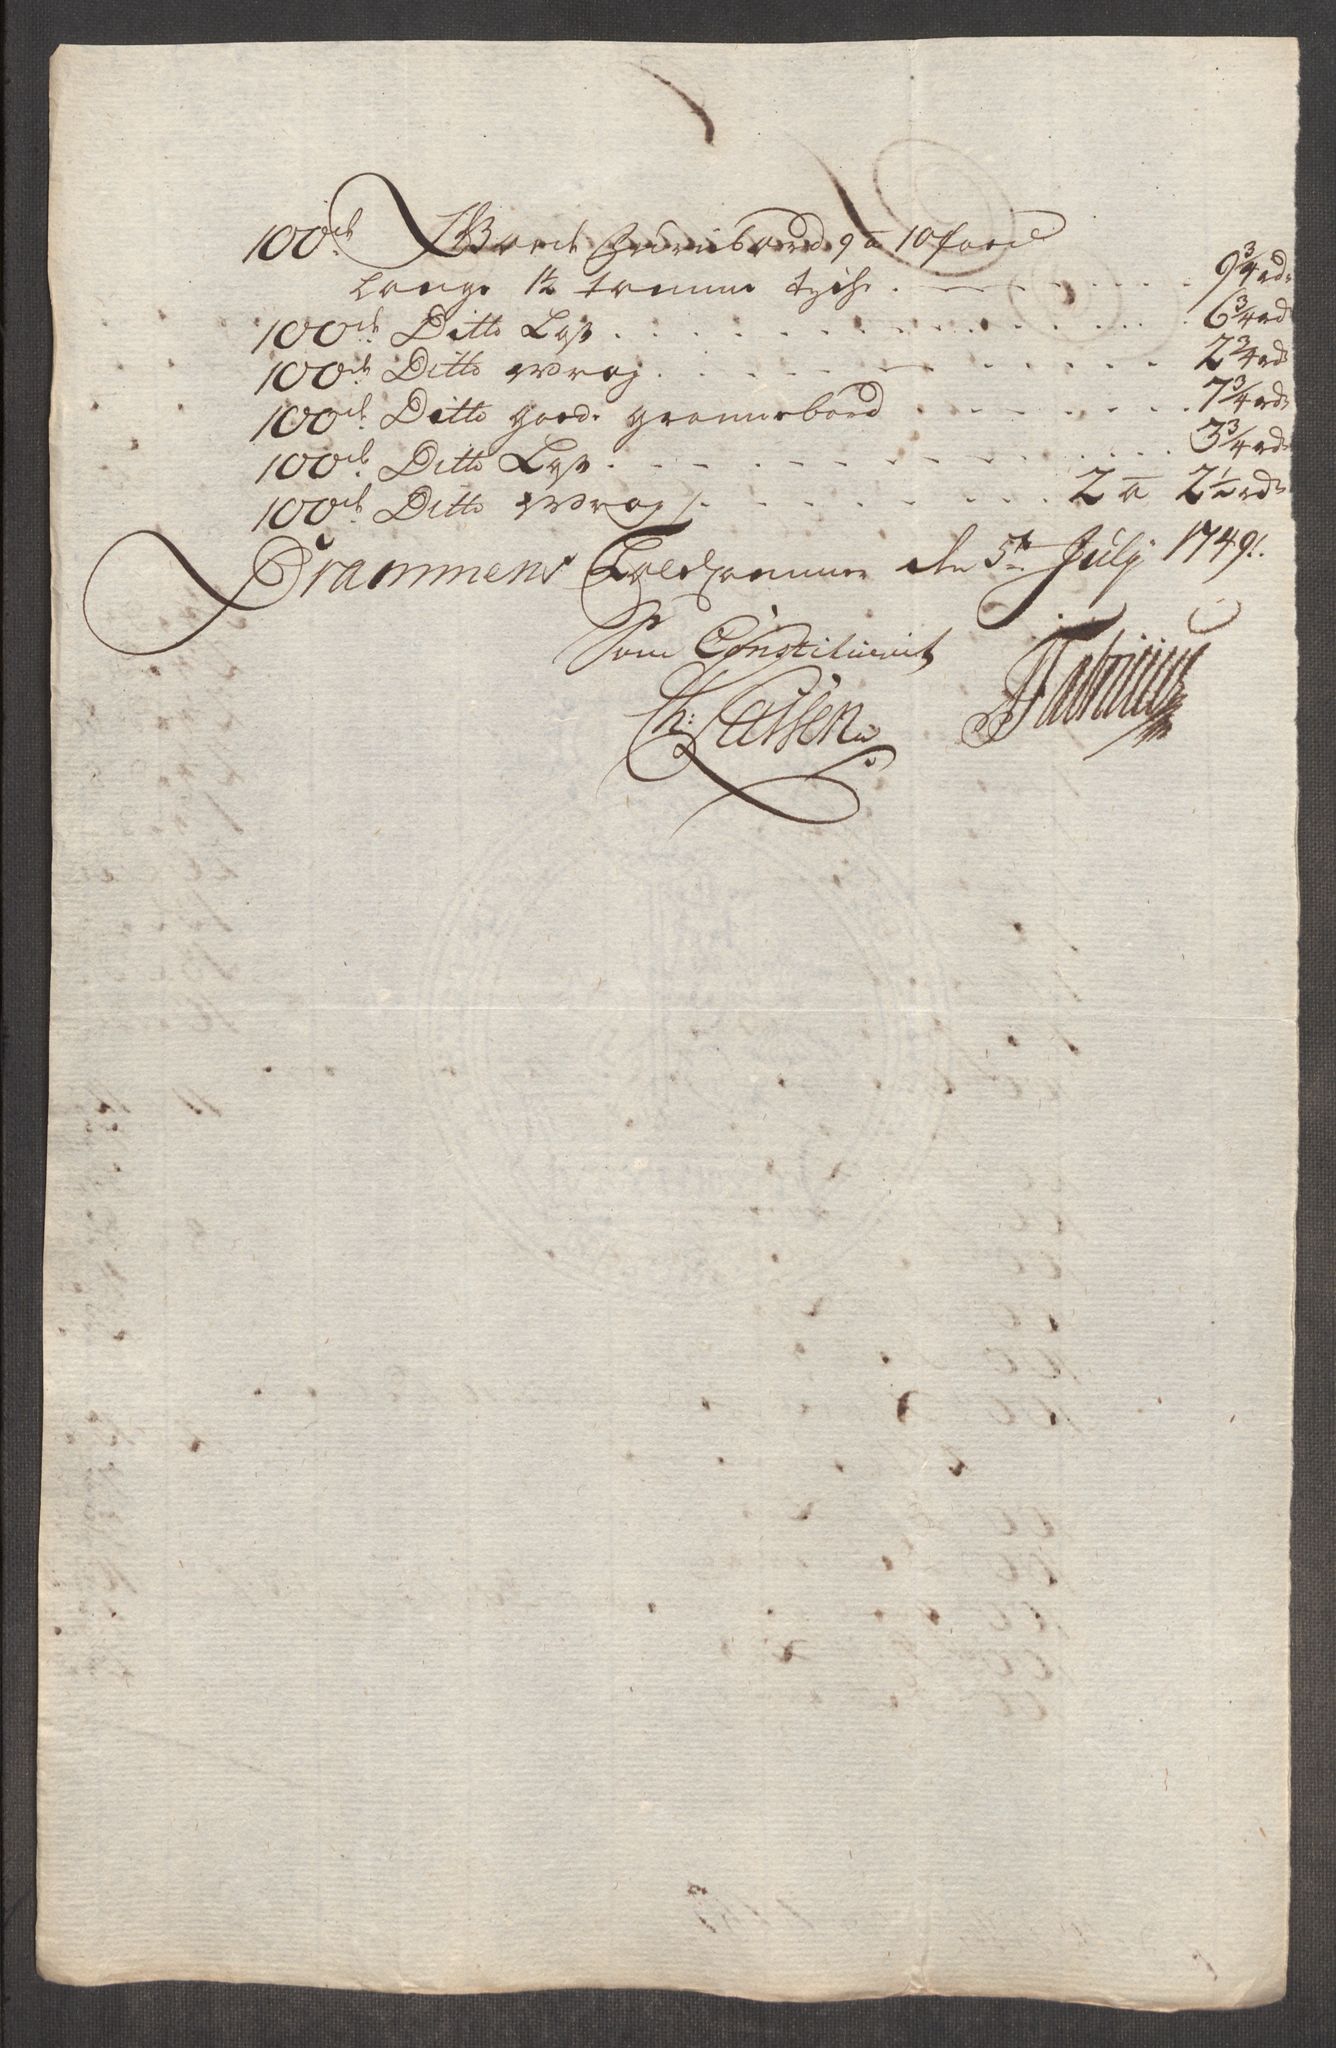 100de Goede Furrebord 9 a 10 foed
Lange 1½ tomme tyche 9¾ rd
100de Ditto Løse 6¾ rd
100de Ditto Wrag 2¾ rd
100de Ditto goede granebord 7¾ rd
100de Ditto Løse 3¾ rd
100de Ditto Wrag 2 a 2½ rd
Drammens Toldkammer den 5te Julij 1749.
Som Constituerit
Ch: Lassen JFabritius